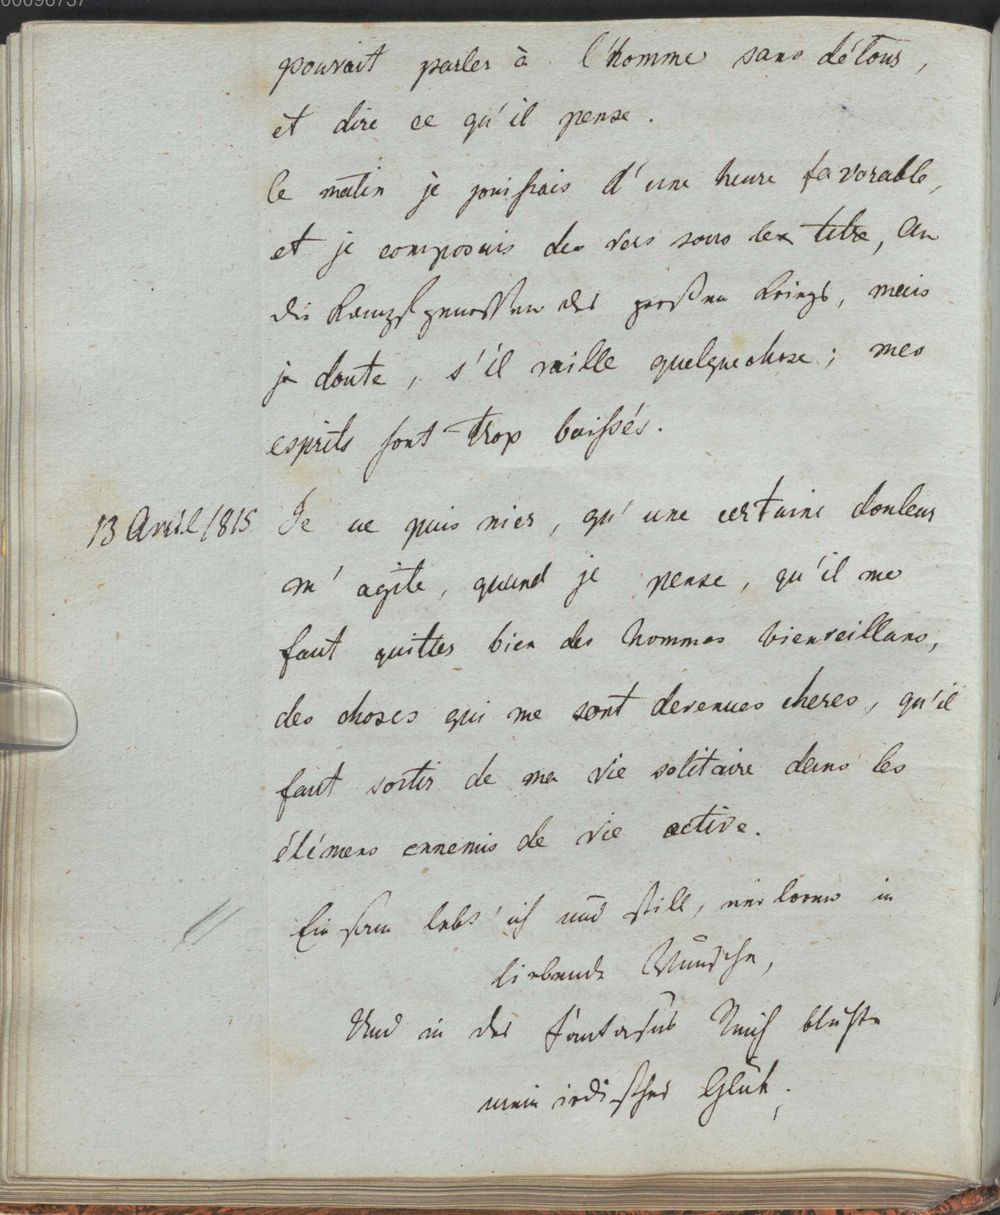 00096737
pouvait parler à l'homme sans détour,
et dire ce qu'il pense.
Ce matin je jouissais d'une heure favorable,
et je composais des vers sous le titre, An
die Kampfgenossen des großen Kriegs, mais
je doute, s'il vaille quelquechose; mes
esprits sont trop baissés.
13 Avril 1815 Je ne puis nier, qu'une certaine douleur
m'agite, quand je pense, qu'il me
faut quitter bien des hommes bienveillans,
des choses qui me sont devenues cheres, qu'il
faut sortir de ma vie solitaire dans les
élémens ennemis de vie active.
Einsam lebt' ich und still, verloren in
liebende Wünsche,
Und in der Fantasus Reich blühte
mein irdisches Glük.